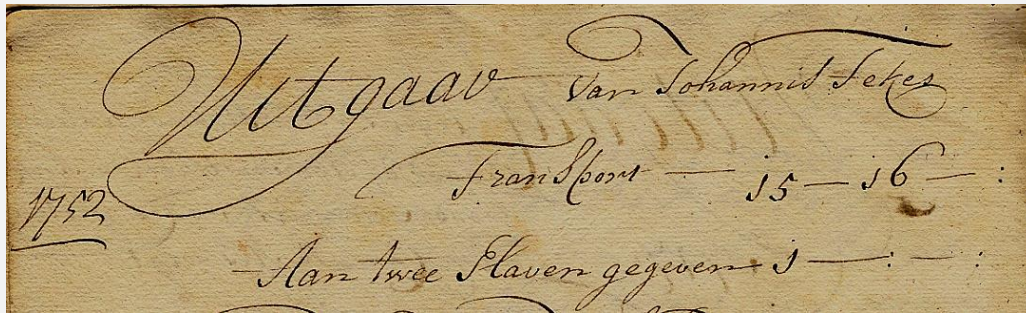 Uitgaav Van Johannis Fekes
Transport — 15 — 16 — :
1752
Aan twee Slaven gegeven 1 — : — :